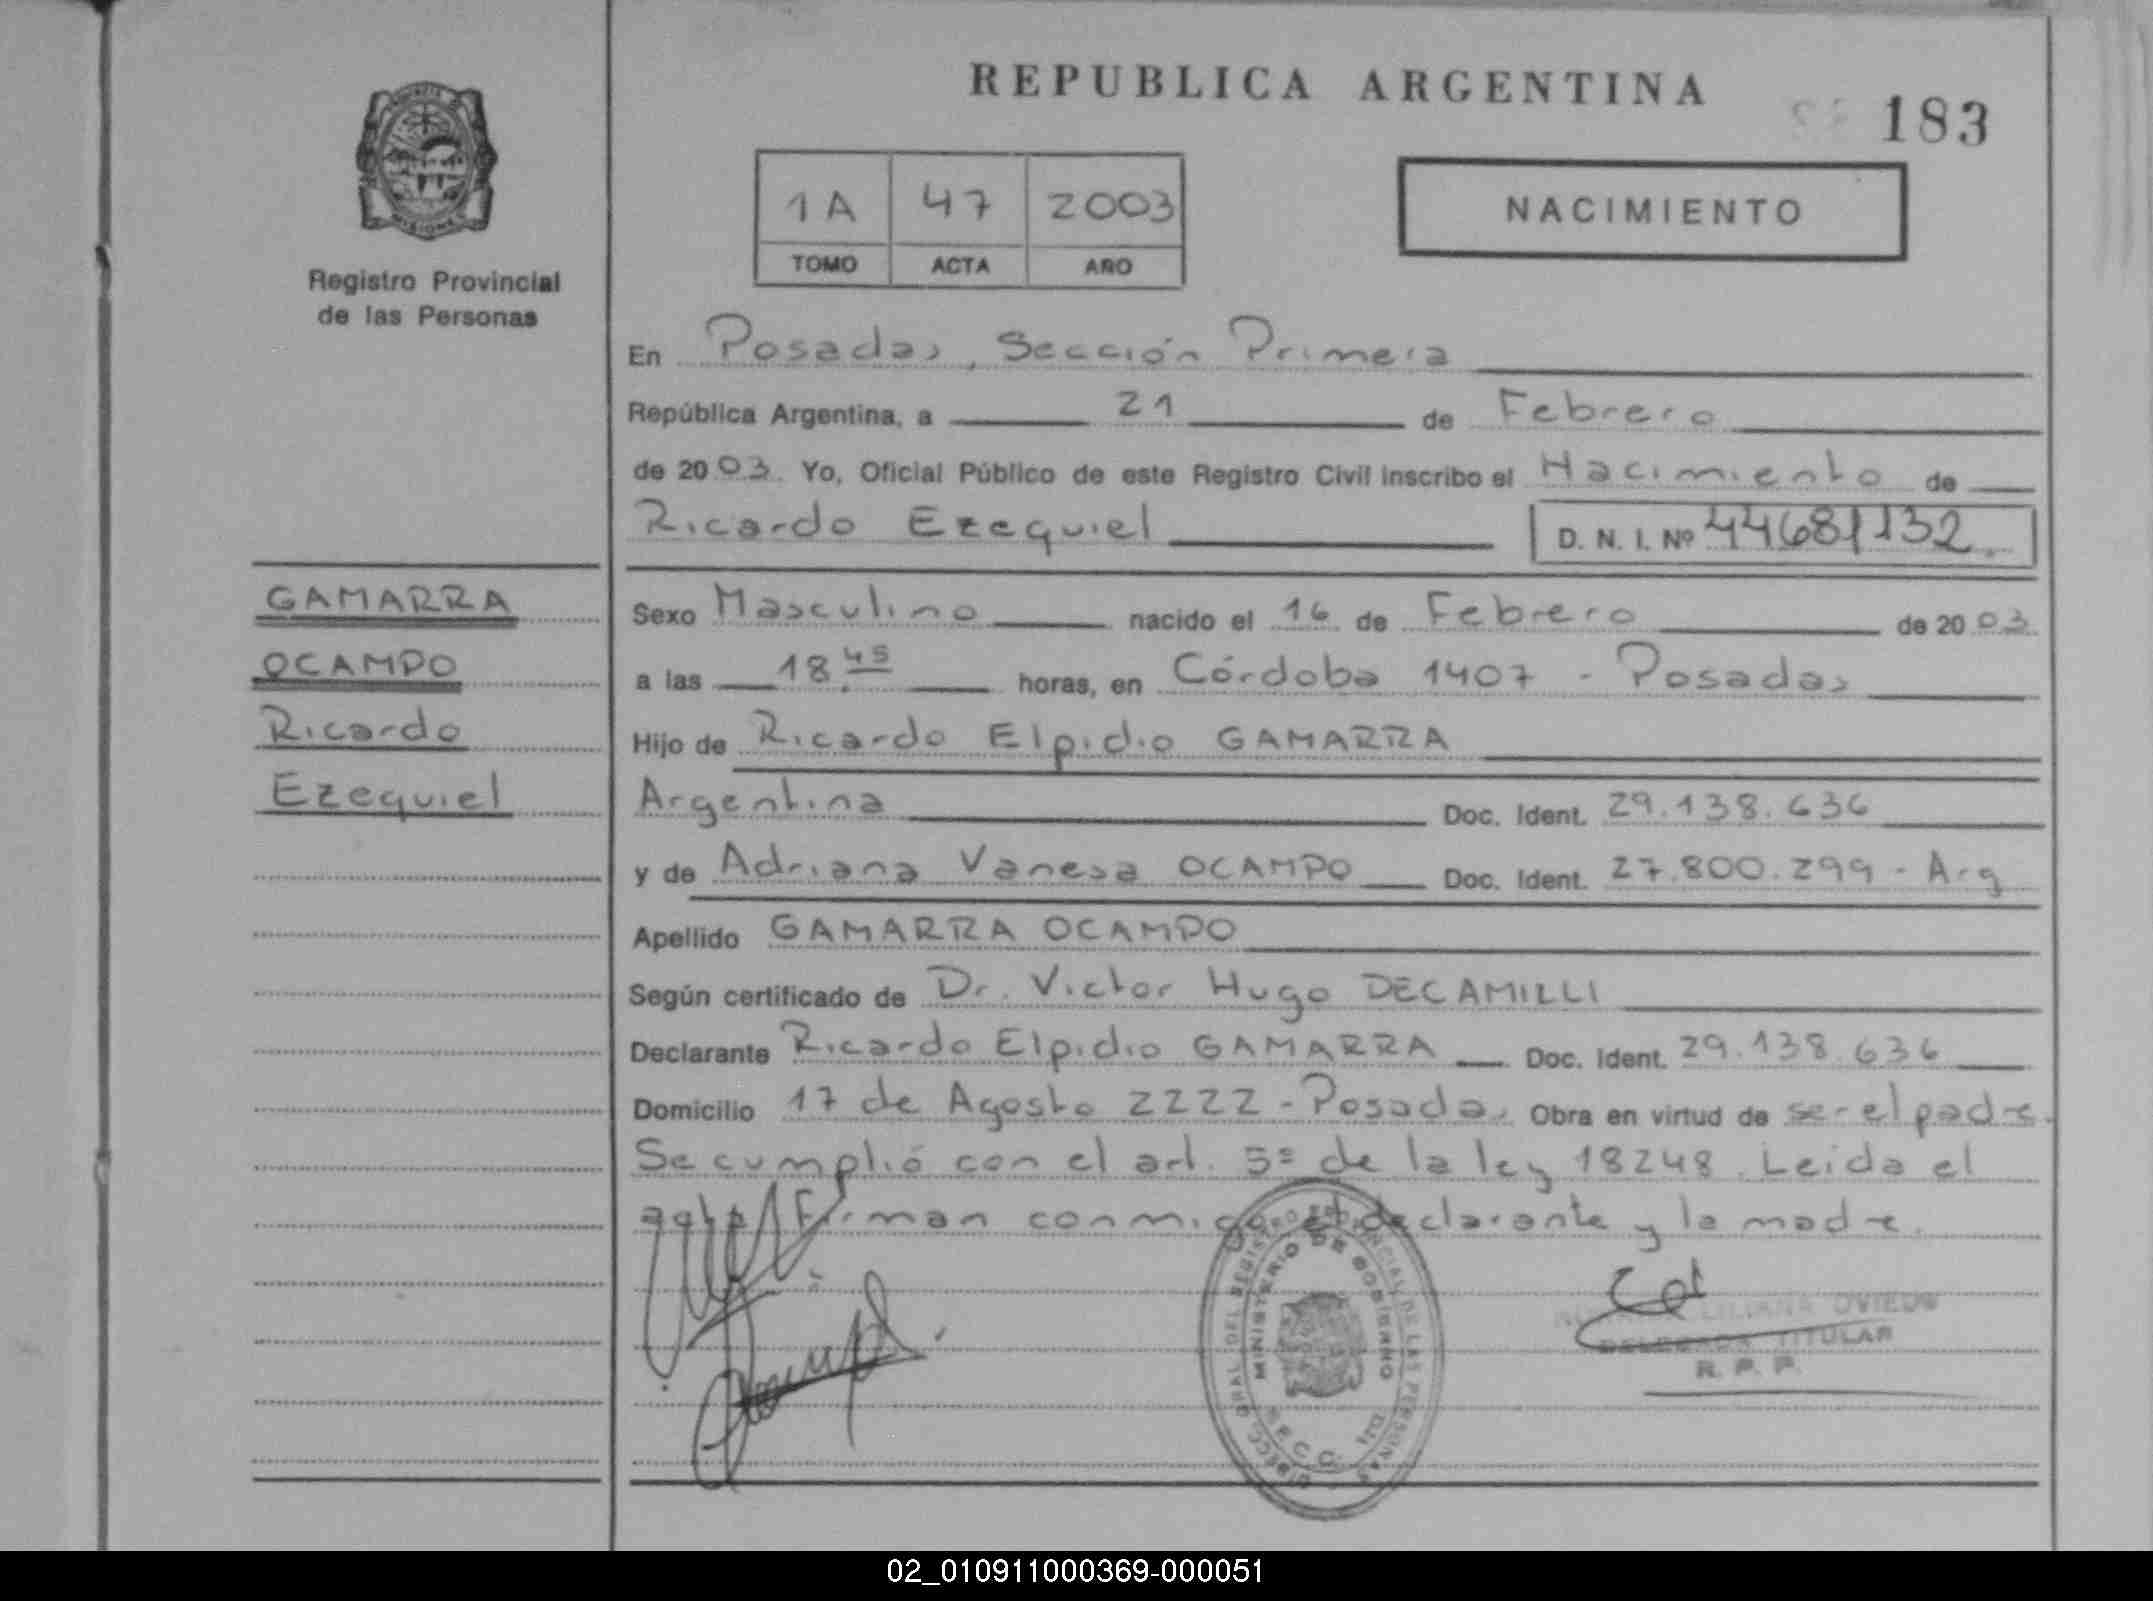 REPUBLICA ARGENTINA
183
1A 47 2003
TOMO ACTA AÑO
NACIMIENTO
PROVINCIA DE
MISIONES
Registro Provincial
de las Personas
En Posadas, Sección Primera
República Argentina, a 21 de Febrero
de 2003. Yo, Oficial Público de este Registro Civil inscribo el Nacimiento de
Ricardo Ezequiel D. N. I. Nº 44681132
GAMARRA
OCAMPO
Ricardo
Ezequiel
Sexo Masculino nacido el 16 de Febrero de 2003
a las 18.45 horas, en Córdoba 1407 - Posadas
Hijo de Ricardo Elpidio GAMARRA
Argentina Doc. Ident. 29.138.636
y de Adriana Vanesa OCAMPO Doc. Ident. 27.800.299 - Arg
Apellido GAMARRA OCAMPO
Según certificado de Dr. Victor Hugo DECAMILLI
Declarante Ricardo Elpidio GAMARRA Doc. Ident. 29.138.636
Domicilio 17 de Agosto 2222 - Posadas Obra en virtud de ser el padre.
Se cumplió con el art. 5º de la ley 18248. Leida el
acta, Firman conmigo el declarante y la madre.
DIRECC. GRAL. DEL REGISTRO PROVINCIAL DE LAS PERSONAS
MINISTERIO DE GOBIERNO
LILIANA OVIEDO
DELEGADA TITULAR
R. P. P.
02_010911000369-000051